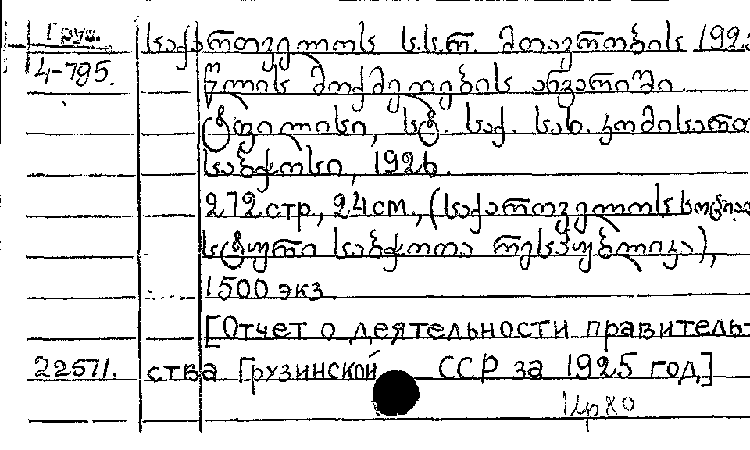 Груз. საქართველოს ს.ს.რ. მთავრობის 192
4-795. წლის მოქმედების ანგარიში
ტფილისი, სტ. საქ. სახ. კომისართა
საბჭოსი, 1926.
272 стр., 24 см., (საქართველოს სოციალ
სტური საბჭოთა რესპუბლიკა),
1500 экз
[Отчет о деятельности правительт
22571. ства Грузинской ССР за 1925 год]